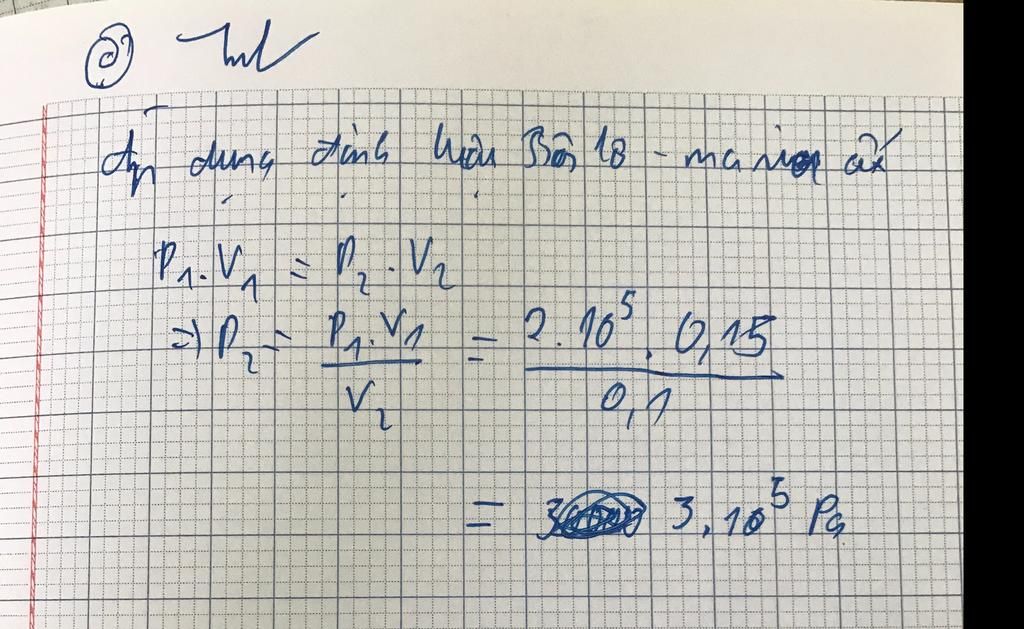 Áp dụng định luật Bôi lơ - ma ri ốt
P₁.V₁ = P₂.V₂
=> P₂ = P₁.V₁ / V₂ = 2.10⁵.0,15 / 0,1
= 3.10⁵ Pa